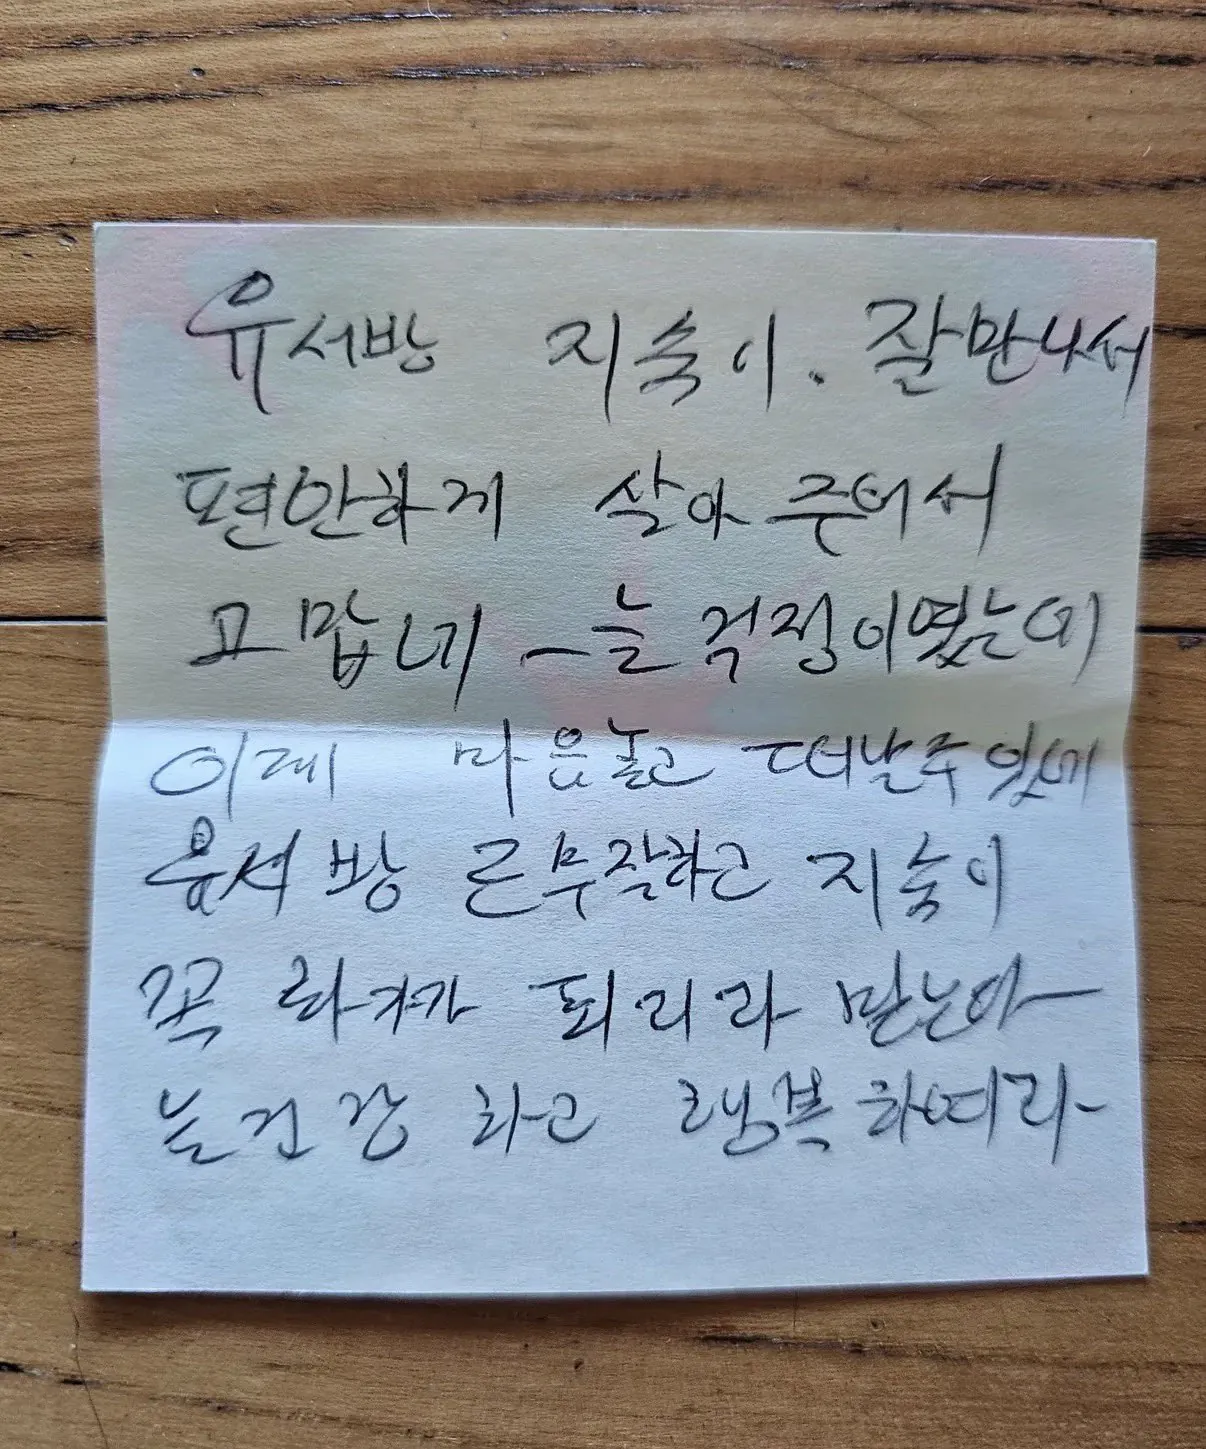 유서방 지숙이. 잘만나서
편안하게 살아 주어서
고맙네 - 늘 걱정이였는데
이제 마음놓고 떠날수있네
유서방 큰부탁하고 지숙이
꼭 화가가 되리라 믿는다
늘건강 하고 행복하여라